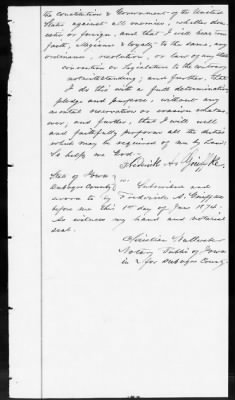 the constitution & Government of the United
States against all enemies, whether dom-
estic or foreign, and that I will bear true
faith, allegiance & loyalty to the same, any
ordinance, resolution, or law of any State
convention or Legislature to the contrary
notwithstanding; and further, that
I do this with a full determination,
pledge and purpose, without any
mental reservation or evasion whatso-
ever, and further, that I will well
and faithfully perform all the duties
which may be required of me by law.
So help me God.
Frederick A. Gniffke
State of Iowa }
Dubuque County } ss. Subscribed and
sworn to by Frederick A. Gniffke
before me this 1st day of Jan 1874.
As witness my hand and notarial
seal.
Christian
Notary Public of Iowa
in & for Dubuque County